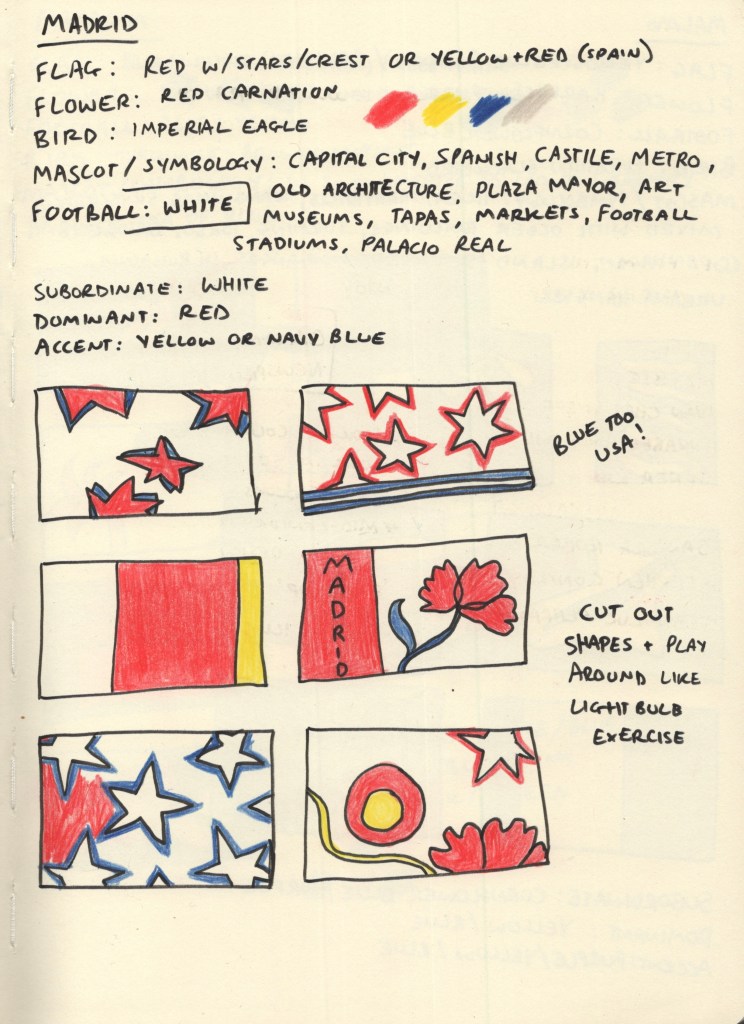 MADRID
FLAG: RED W/STARS/CREST OR YELLOW+RED (SPAIN)
FLOWER: RED CARNATION
BIRD: IMPERIAL EAGLE
MASCOT/SYMBOLOGY: CAPITAL CITY, SPANISH, CASTILE, METRO,
OLD ARCHITECTURE, PLAZA MAYOR, ART
MUSEUMS, TAPAS, MARKETS, FOOTBALL
STADIUMS, PALACIO REAL
FOOTBALL: WHITE
SUBORDINATE: WHITE
DOMINANT: RED
ACCENT: YELLOW OR NAVY BLUE
BLUE TOO
USA!
MADRID
CUT OUT
SHAPES + PLAY
AROUND LIKE
LIGHT BULB
EXERCISE